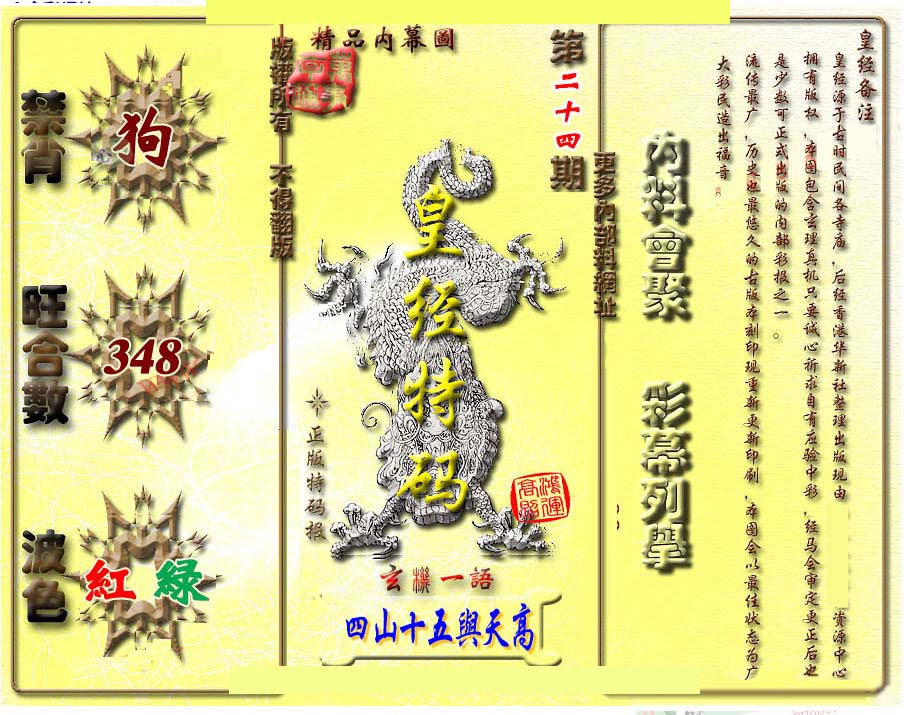 皇经备注
皇经源于古时民间各寺庙,后经香港华新社整理出版现由 资源中心
拥有版权,本图包含玄理真机只要诚心祈求自有应验中彩,经马会审定更正后也
是少数可正式出版的内部彩报之一。
流传最广,历史也最悠久的古版本刻印现重新更新印刷,本图会以最佳状态为广
大彩民造出福音
內料會聚 彩幕列舉
更多內部料網址
第二十四期
精品内幕圖
皇经特码
正版特码报
鴻運高照
玄機一語
四山十五與天高
版權所有 不得翻版
禁肖
狗
旺合數
348
波色
紅 綠